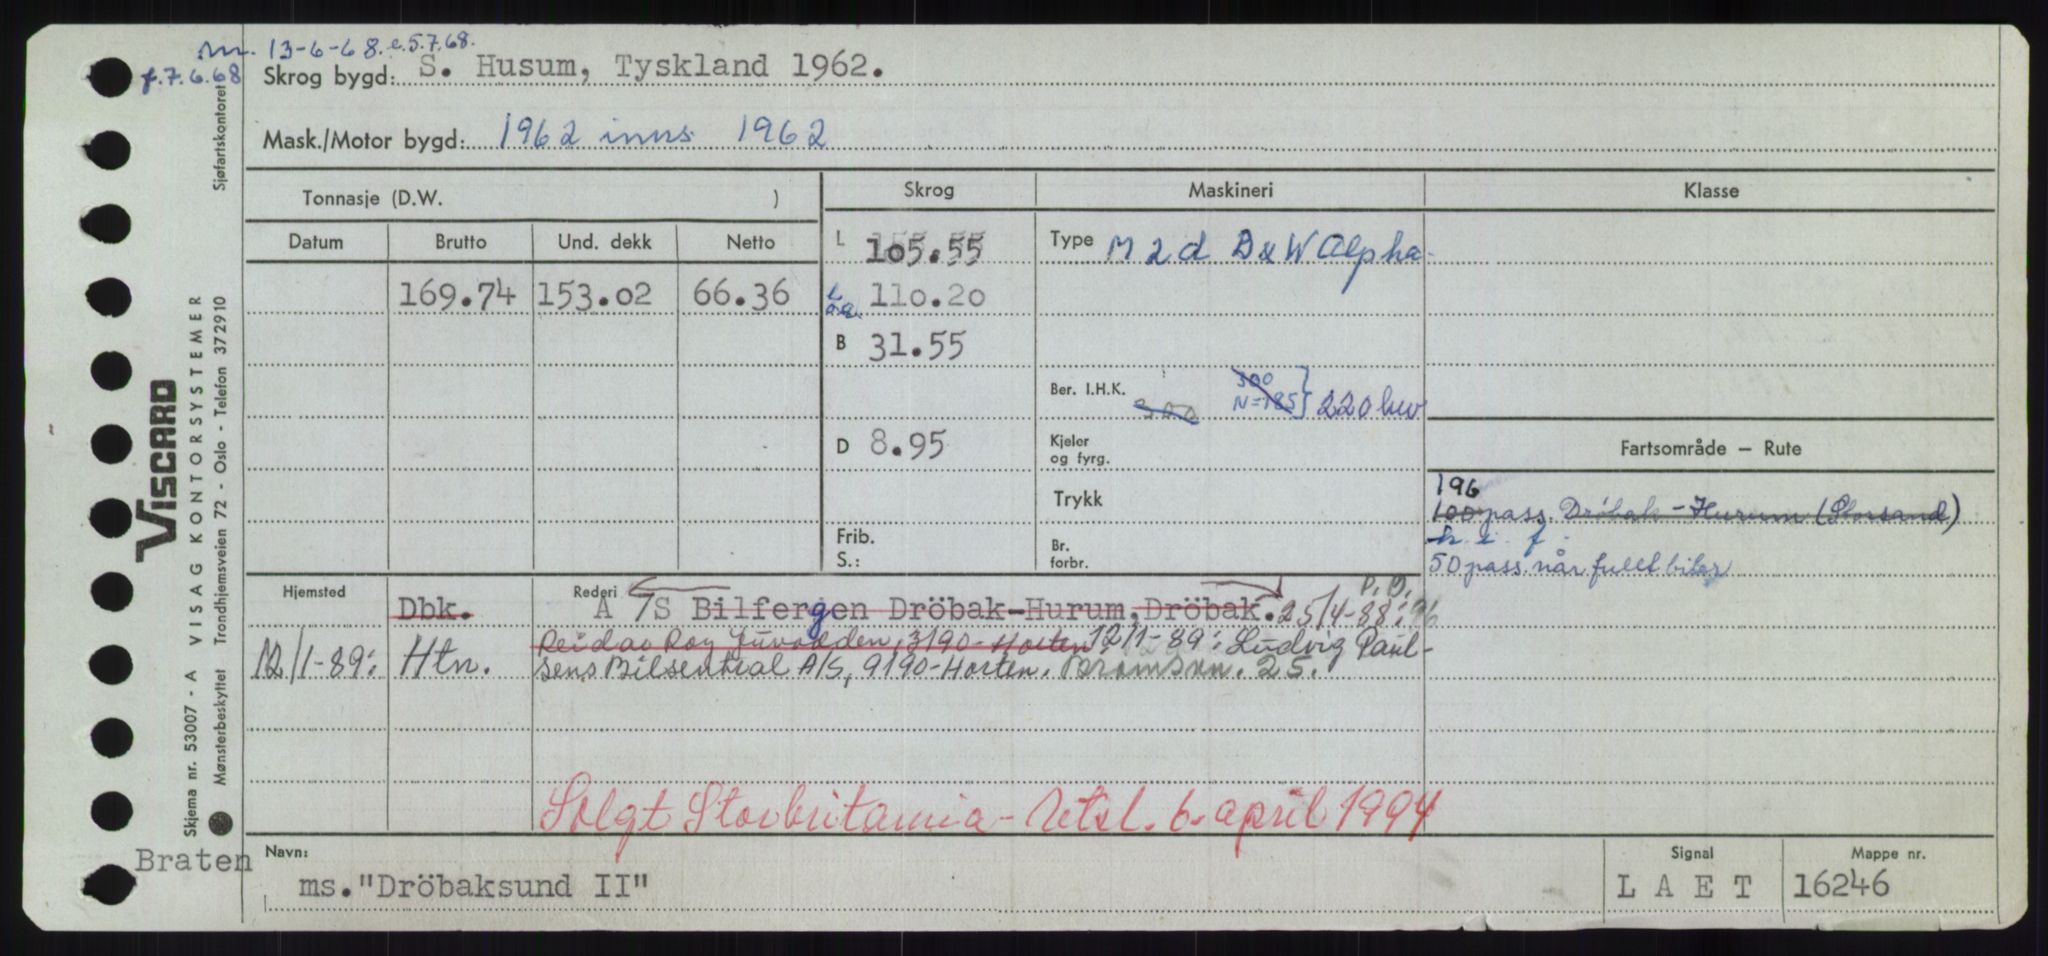 m. 13-6-68. e.5.7.68.
f.7.6.68
Skrog bygd: S. Husum, Tyskland 1962.
Mask./Motor bygd: 1962 inns 1962
Tonnasje (D.W. )
Skrog
Maskineri
Klasse
Datum Brutto Und. dekk Netto
L 105.55
Type M 2 d B&W Alpha.
169.74 153.02 66.36
110.20
B 31.55
Ber. I.H.K. 300 300 N=185} 220 kw
D 8.95
Kjeler og fyrg.
Fartsområde – Rute
Trykk
196
100 pass. Dröbak-Hurum (Storsand)
Frib.
S.:
Br. forbr.
50 pass. når fullt biler
Hjemsted
Rederi
Dbk. A/S Bilfergen Dröbak-Hurum, Dröbak. 25/4-88:
Reidar Roy 3190-Horten. 12/1-89: Ludvig Paul-
12/1-89: Htn. sens Bilsentral A/S, 9190-Horten. 25.
Solgt Storbritannia - 6. april 1994
Braten
Navn: ms."Dröbaksund II"
Signal LAET
Mappe nr. 16246
VISCARD
Skjema nr. 53007 - A VISAG KONTORSYSTEMER
Mønsterbeskyttet Trondhjemsveien 72 - Oslo - Telefon 372910
Sjøfartskontoret